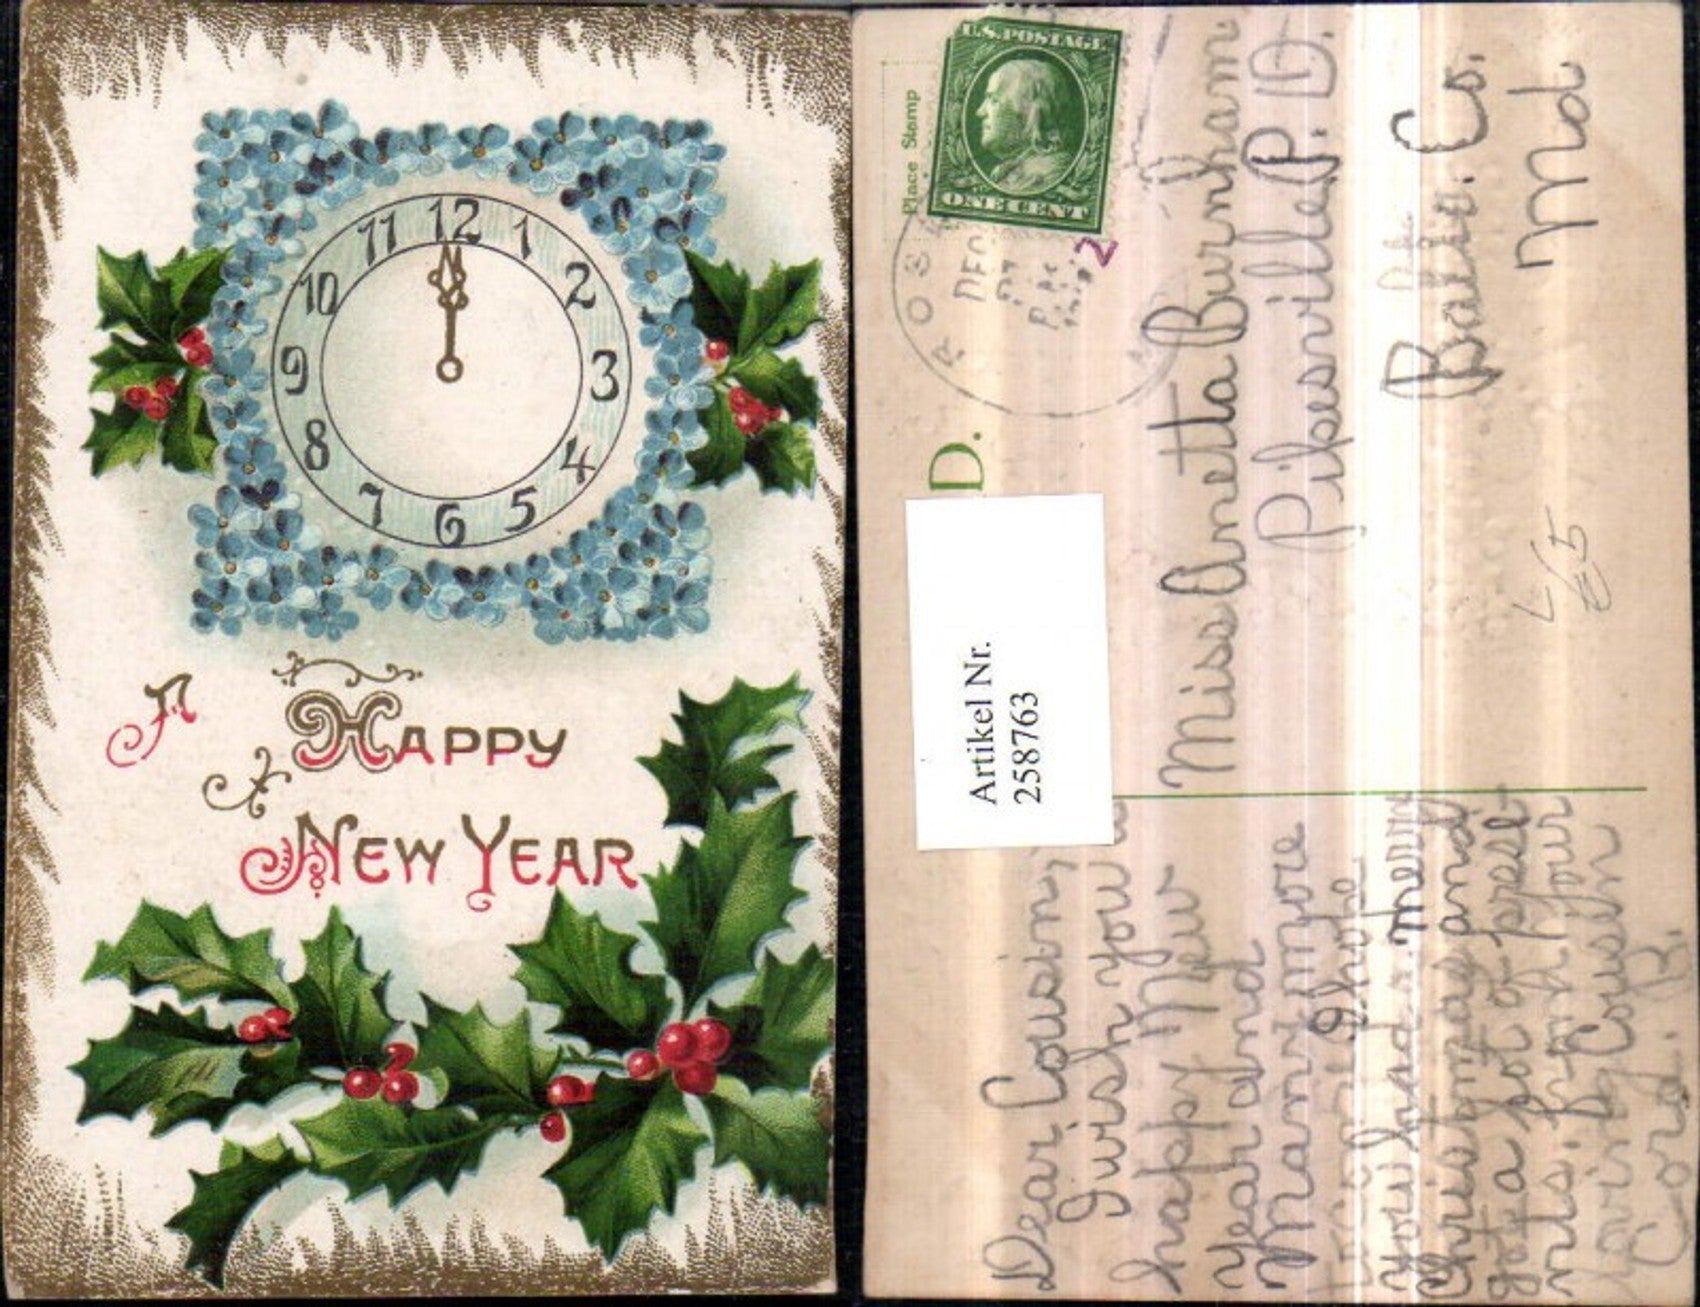 12
1
2
3
4
5
6
7
8
9
10
11
A Happy
New Year
Place Stamp
U.S. POSTAGE
ONE CENT
2
DEC
D.
Artikel Nr.
2588763
Miss Annetta Burnham
Pikesville P. D.
Balto. Co.
Md
Dear Cousin,
I wish you a
happy New
Year and
Many more
I hope
you had a merry
Christmas and
got a lot of prese-
nts, from your
loving Cousin
Cord. B.